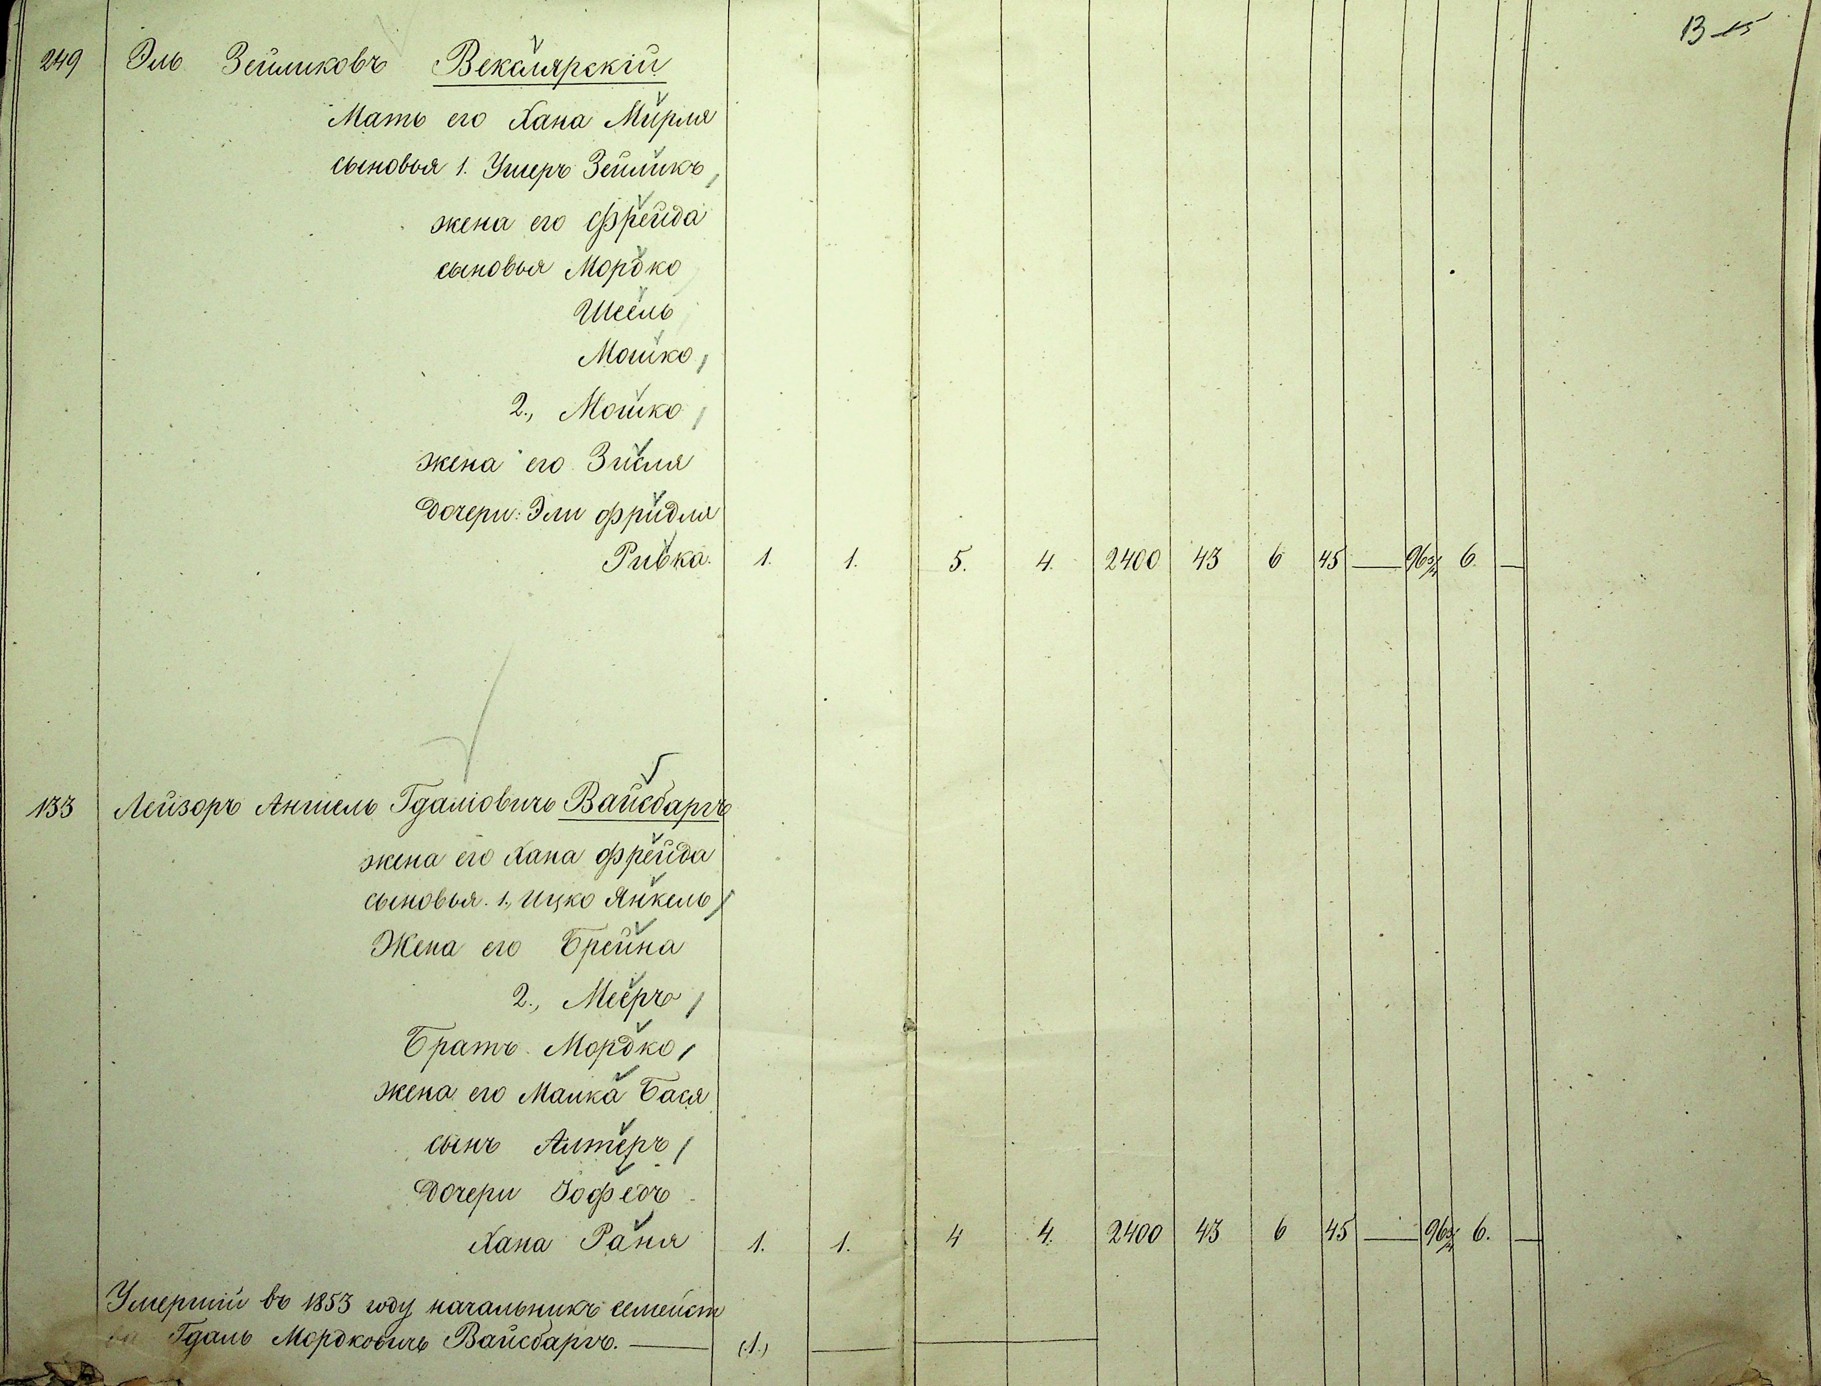 13
249 Эль Зейликовъ Векслярскій
Мать его Хана Мирля
сыновья 1. Ушеръ Зейликъ,
жена его Фрейда
сыновья Мордко
Шеель
Мошко,
2., Мошко
жена его Зисля
Дочери: Эли Фридля
Ривка. 1. 1. 5. 4. 2400 43 6 45 — 96 3/4 6. —
133 Лейзоръ Аншель Гдаліовичъ Вайсбаргъ
жена его Хана Фрейда
сыновья. 1., Ицко Янкель,
Жена его Брейна
2., Мееръ
Братъ Мордко,
жена его Малка Бася
сынъ Алтеръ,
Дочери
Хана Раня 1. 1. 4 4. 2400 43 6 45 — 96 3/4 6. —
Умершій въ 1853 году начальникъ семейст
ва Гдаль Мордковичъ Вайсбаргъ. — (1.) —